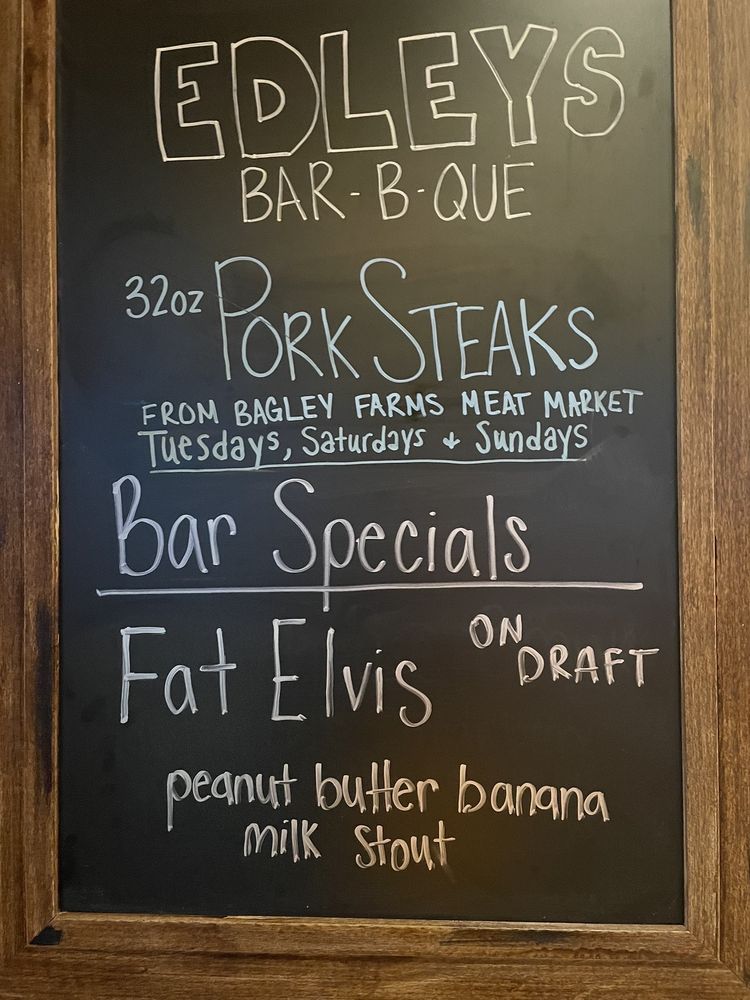 EDLEYS
BAR-B-QUE
32oz PORK STEAKS
FROM BAGLEY FARMS MEAT MARKET
Tuesdays, Saturdays + Sundays
Bar Specials
Fat Elvis ON DRAFT
peanut butter banana
milk stout